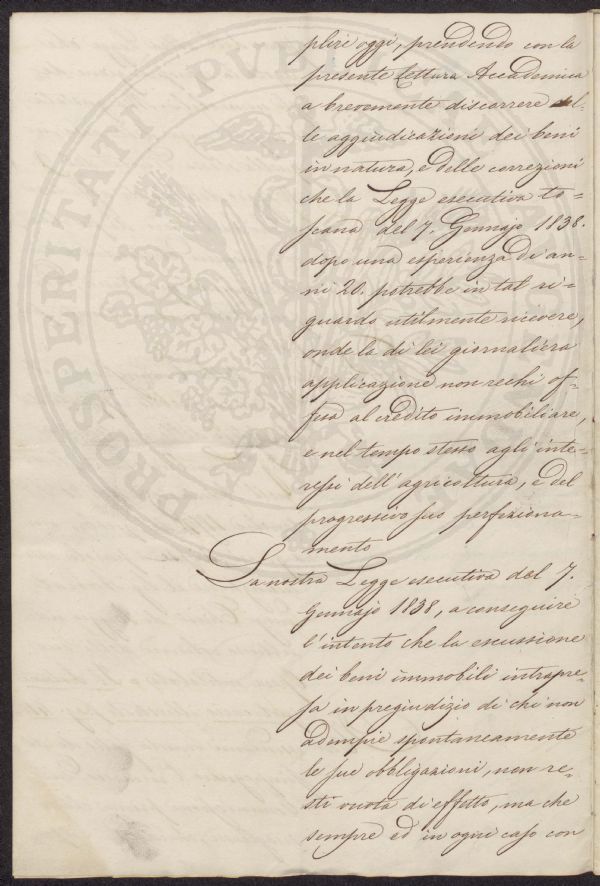 plire oggi, prendendo con la
presente Lettura Accademica
a brevemente discorrere del-
le aggiudicazioni dei beni
in natura, e delle correzioni
che la Legge esecutiva to=
scana del 7. Gennajo 1838.
dopo una esperienza di an=
ni 20. potrebbe in tal ri=
guardo utilmente ricevere,
onde la di lei giornaliera
applicazione non rechi of=
fesa al credito immobiliare,
e nel tempo stesso agli inte=
ressi dell'agricoltura, e del
progressivo suo perfeziona=
mento
La nostra Legge esecutiva del 7.
Gennajo 1838, a conseguire
l'intento che la escussione
dei beni immobili intrapre=
sa in pregiudizio di chi non
adempie spontaneamente
le sue obbligazioni, non re=
sti vuota di effetto, ma che
sempre ed in ogni caso con
PROSPERITATI PVB